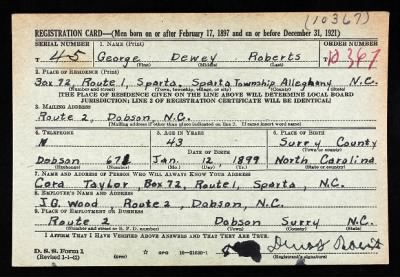 (10367)
REGISTRATION CARD—(Men born on or after February 17, 1897 and on or before December 31, 1921)
SERIAL NUMBER 1. NAME (Print) ORDER NUMBER
45 George Dewey Roberts 10367
(First) (Middle) (Last)
2. PLACE OF RESIDENCE (Print)
Box 72, Route 1, Sparta, Sparta Township Alleghany N.C.
(Number and street) (Town, township, village, or city) (County) (State)
[THE PLACE OF RESIDENCE GIVEN ON THE LINE ABOVE WILL DETERMINE LOCAL BOARD
JURISDICTION; LINE 2 OF REGISTRATION CERTIFICATE WILL BE IDENTICAL]
3. MAILING ADDRESS
Route 2, Dobson, N.C.
[Mailing address if other than place indicated on line 2. If same insert word same]
4. TELEPHONE 5. AGE IN YEARS 6. PLACE OF BIRTH
N 43 Surry County
DATE OF BIRTH (Town or county)
Dobson 671 Jan. 12, 1899 North Carolina
(Exchange) (Number) (Mo.) (Day) (Yr.) (State or country)
7. NAME AND ADDRESS OF PERSON WHO WILL ALWAYS KNOW YOUR ADDRESS
Cora Taylor Box 72, Route 1, Sparta, N.C.
8. EMPLOYER'S NAME AND ADDRESS
J.G. Wood, Route 2, Dobson, N.C.
9. PLACE OF EMPLOYMENT OR BUSINESS
Route 2 Dobson Surry N.C.
(Number and street or R. F. D. number) (Town) (County) (State)
I AFFIRM THAT I HAVE VERIFIED ABOVE ANSWERS AND THAT THEY ARE TRUE.
D. S. S. Form 1
(Revised 1-1-42) (over)